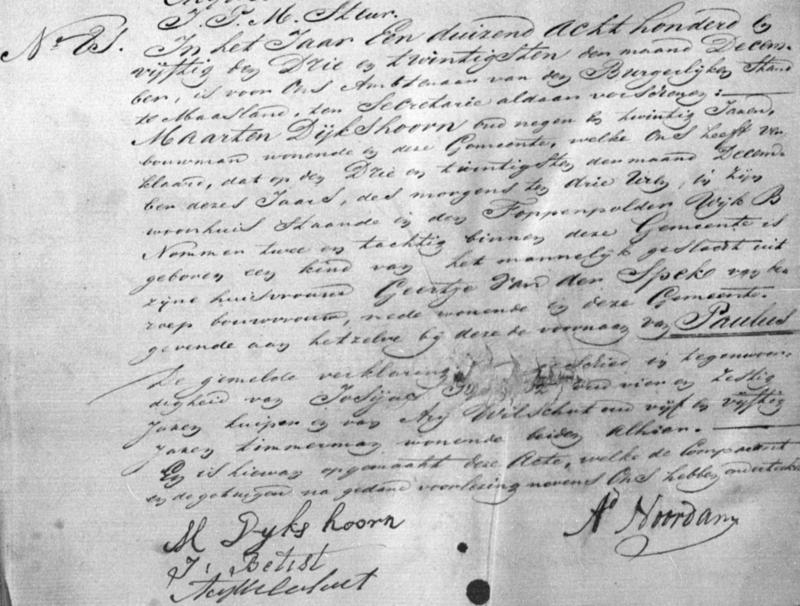 J. P. M. Steur.
No 81. In het Jaar Een duizend acht honderd en
vijftig den Drie en twintigsten der maand Decem-
ber, is voor Ons Ambtenaar van den Burgerlijken Stand
te Maasland, ter Secretarie aldaar verschenen:
Maarten Dijkshoorn oud negen en twintig Jaren,
bouwman wonende in deze Gemeente, welke Ons heeft ver
klaard, dat op den Drie en twintigsten der maand Decem-
ber dezes Jaars, des morgens ten drie Uren, in zijn
woonhuis staande in den Foppenpolder Wijk B
Nommer twee en tachtig binnen deze Gemeente is
geboren een kind van het mannelijk geslacht uit
zijne huisvrouw Geertje van der Spek van be
roep bouwvrouw, mede wonende in deze Gemeente.
gevende aan hetzelve bij deze de voornaam van Paulus
De gemelde verklaring geschied in tegenwoor-
digheid van Josijas oud vier en zestig
Jaren kuiper en van Ary Wilschut oud vijf en vijftig
Jaren timmerman wonende beiden alhier.
En is hiervan opgemaakt deze Acte, welke de Comparant
en de getuigen na gedane voorlezing nevens Ons hebben onderteekend
M Dykshoorn
J. Betist
A Noordam